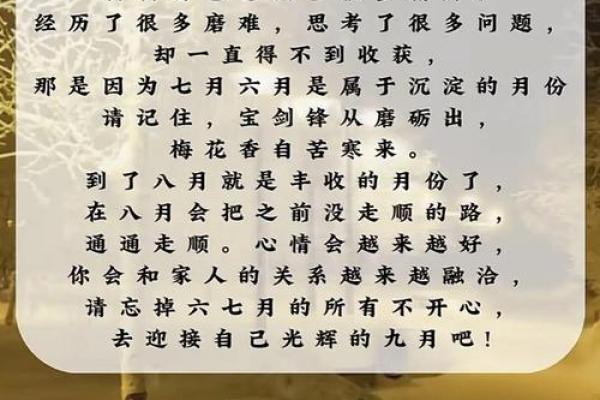 经历了很多磨难，思考了很多问题，
却一直得不到收获，
那是因为七月六月是属于沉淀的月份
请记住，宝剑锋从磨砺出，
梅花香自苦寒来。
到了八月就是丰收的月份了，
在八月会把之前没走顺的路，
通通走顺。心情会越来越好，
你会和家人的关系越来越融洽，
请忘掉六七月的所有不开心，
去迎接自己光辉的九月吧！